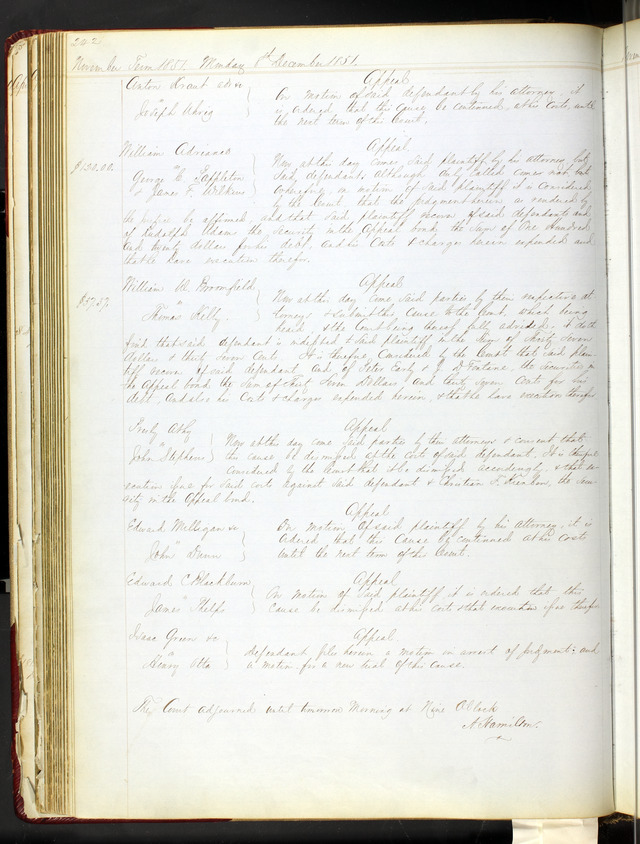 202
November Term 1851. Monday 8th December 1851.
Anton Kraut
vs
Joseph Uhrig
Appeal
On motion of said defendant by his attorney, it
is ordered that this cause be continued at his costs, until
the next term of this Court.
William Adriance
vs
George C. Tappleton
& James F. Wilkins
$120.00.
Appeal.
Now at this day comes said plaintiff by his attorney, but
said defendants although duly called comes not but
on motion of said plaintiff it is considered
by the Court that the judgment herein as rendered by
the justice be affirmed, and that said plaintiff recover of said defendants and
of Rudolph Adam the security in the Appeal bond, the sum of One Hundred
and twenty dollars for his debt, and his Costs & charges herein expended and
that he have execution therefor.
William W. Broomfield
vs
Thomas Kelly.
$37.57.
Appeal
Now at this day come said parties by their respective at-
torneys & submit this cause to the Court, which being
heard, & the Court being thereof fully advised, doth
find that said defendant is indebted to said plaintiff in the sum of Thirty Seven
dollars & Cents. It is therefore considered by the Court that said plain-
tiff recover of said defendant and of Peter and the securities in
the Appeal bond the sum of Thirty Seven Dollars and Cents for his
debt, and also his Costs & charges expended herein, & that he have execution therefor
vs
John Stephens
Appeal
Now at this day come said parties by their attorneys & consent that
this cause be dismissed at the costs of said defendant. It is therefore
considered by the Court that it be dismissed accordingly, & that ex-
ecution issue for said costs against said defendant & Christian F. the secu-
rity in the Appeal bond.
Edward Milligan
vs
John Dunn
Appeal
On motion of said plaintiff by his attorney, it is
ordered that this cause be continued at his costs
until the next term of this Court.
Edward C. Blackburn
vs
James Phelps
Appeal
On motion of said plaintiff it is ordered that this
cause be dismissed at his costs & that execution issue therefor
Isaac Green
vs
Henry Otto
Appeal.
Defendant files herein a motion in arrest of judgment; and
a motion for a new trial of this cause.
The Court adjourned until tomorrow Morning at Nine OClock
A. Hamilton.